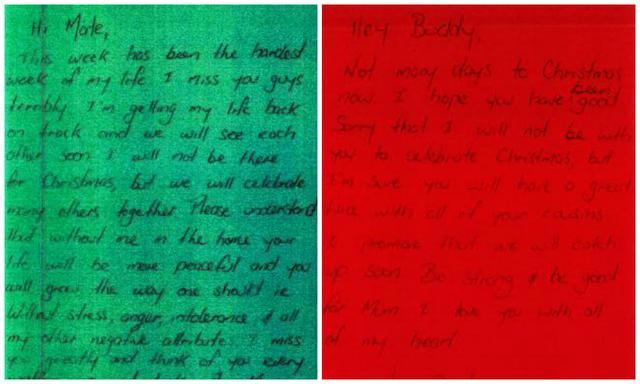 Hi Mate,
This week has been the hardest
week of my life I miss you guys
terribly I'm getting my life back
on track and we will see each
other soon I will not be there
for Christmas, but we will celebrate
many others together. Please understand
that without me in the home your
life will be more peaceful and you
will grow the way one should ie
Without stress, anger, intolerance & all
my other negative attribute. I miss
you greatly and think of you every
Hey Buddy,
Not many days to Christmas
now. I hope you have been good
Sorry that I will not be with
you to celebrate Christmas, but
I'm sure you will have a great
time with all of your cousins
I promise that we will catch
up soon Be strong & be good
for Mum I love you with all
of my heart